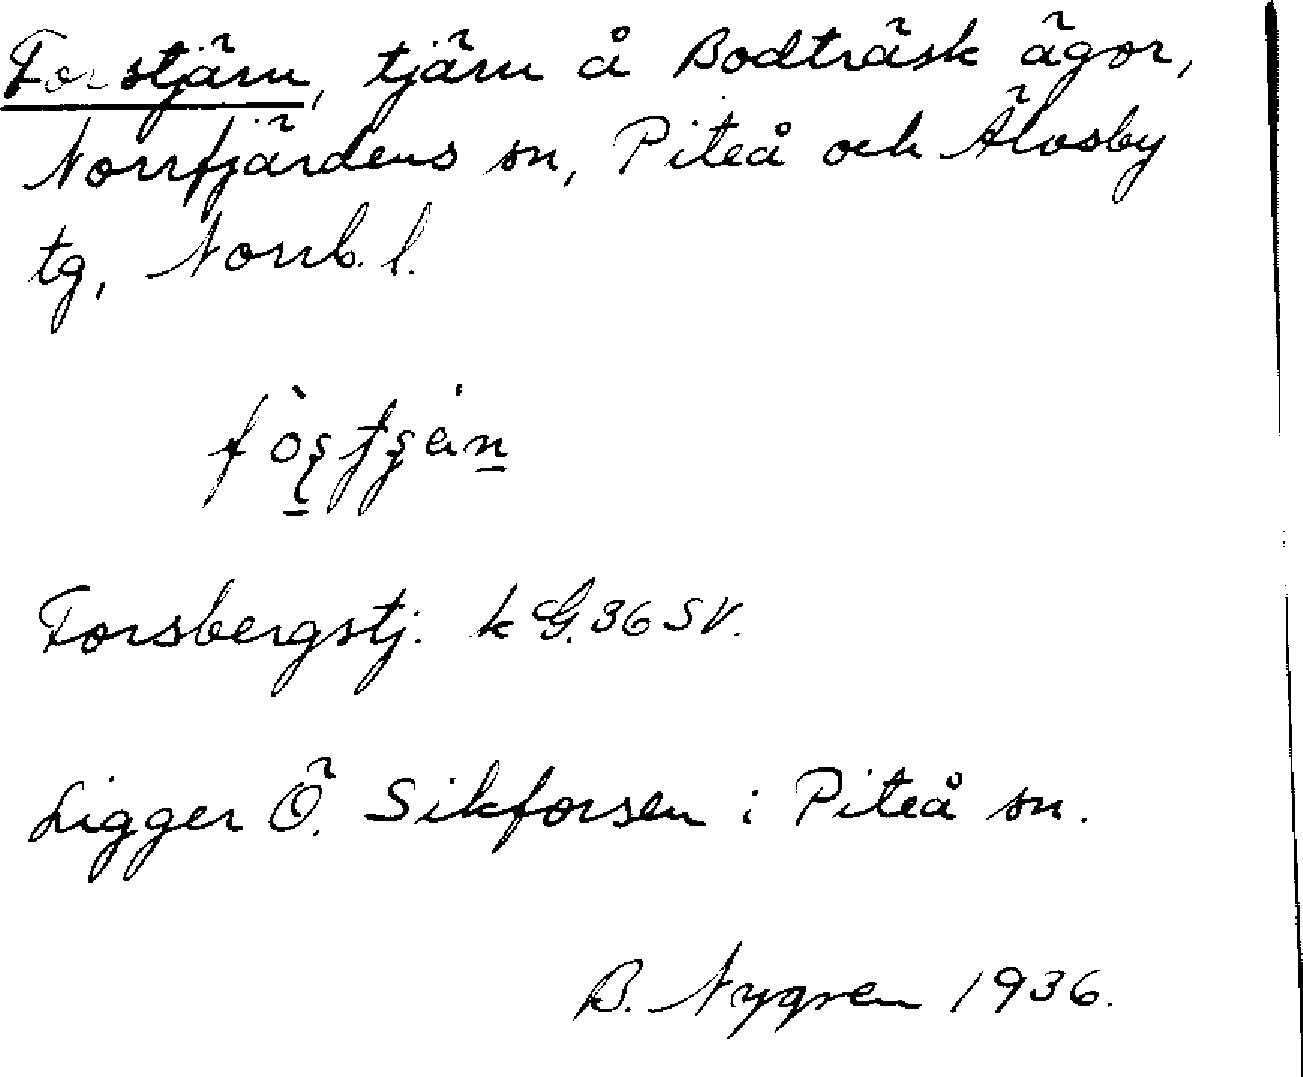 Forstjärn, tjärn å Bodträsk ägor,
Norrfjärdens sn, Piteå och Älvsby
tg, Norrb. l.
Forsbergstj. k G. 36 SV.
Ligger Ö. Sikforsen i Piteå sn.
B. Nygren 1936.